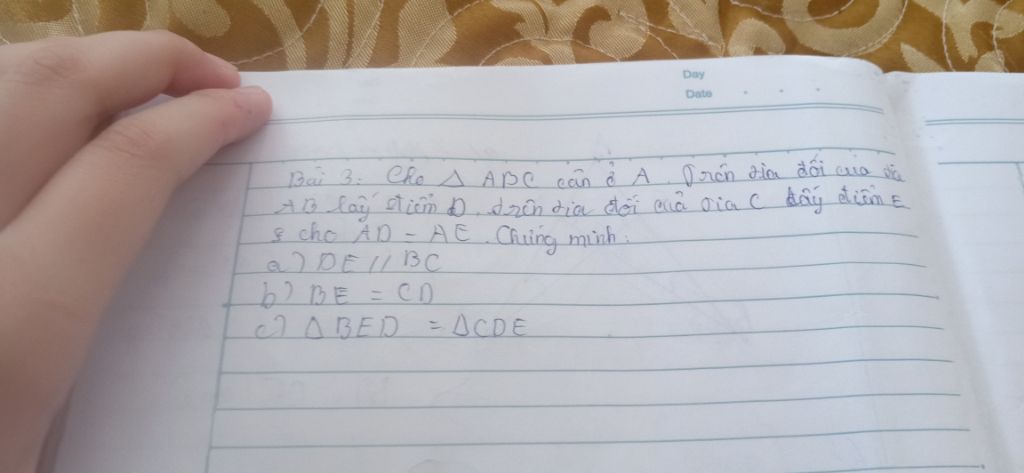 Day
Date
Bài 3: Cho △ ABC cân ở A. Trên tia đối của tia
AB lấy điểm D, trên tia đối của tia C lấy điểm E
s cho AD = AE. Chứng minh:
a) DE // BC
b) BE = CD
c) △BED = △CDE